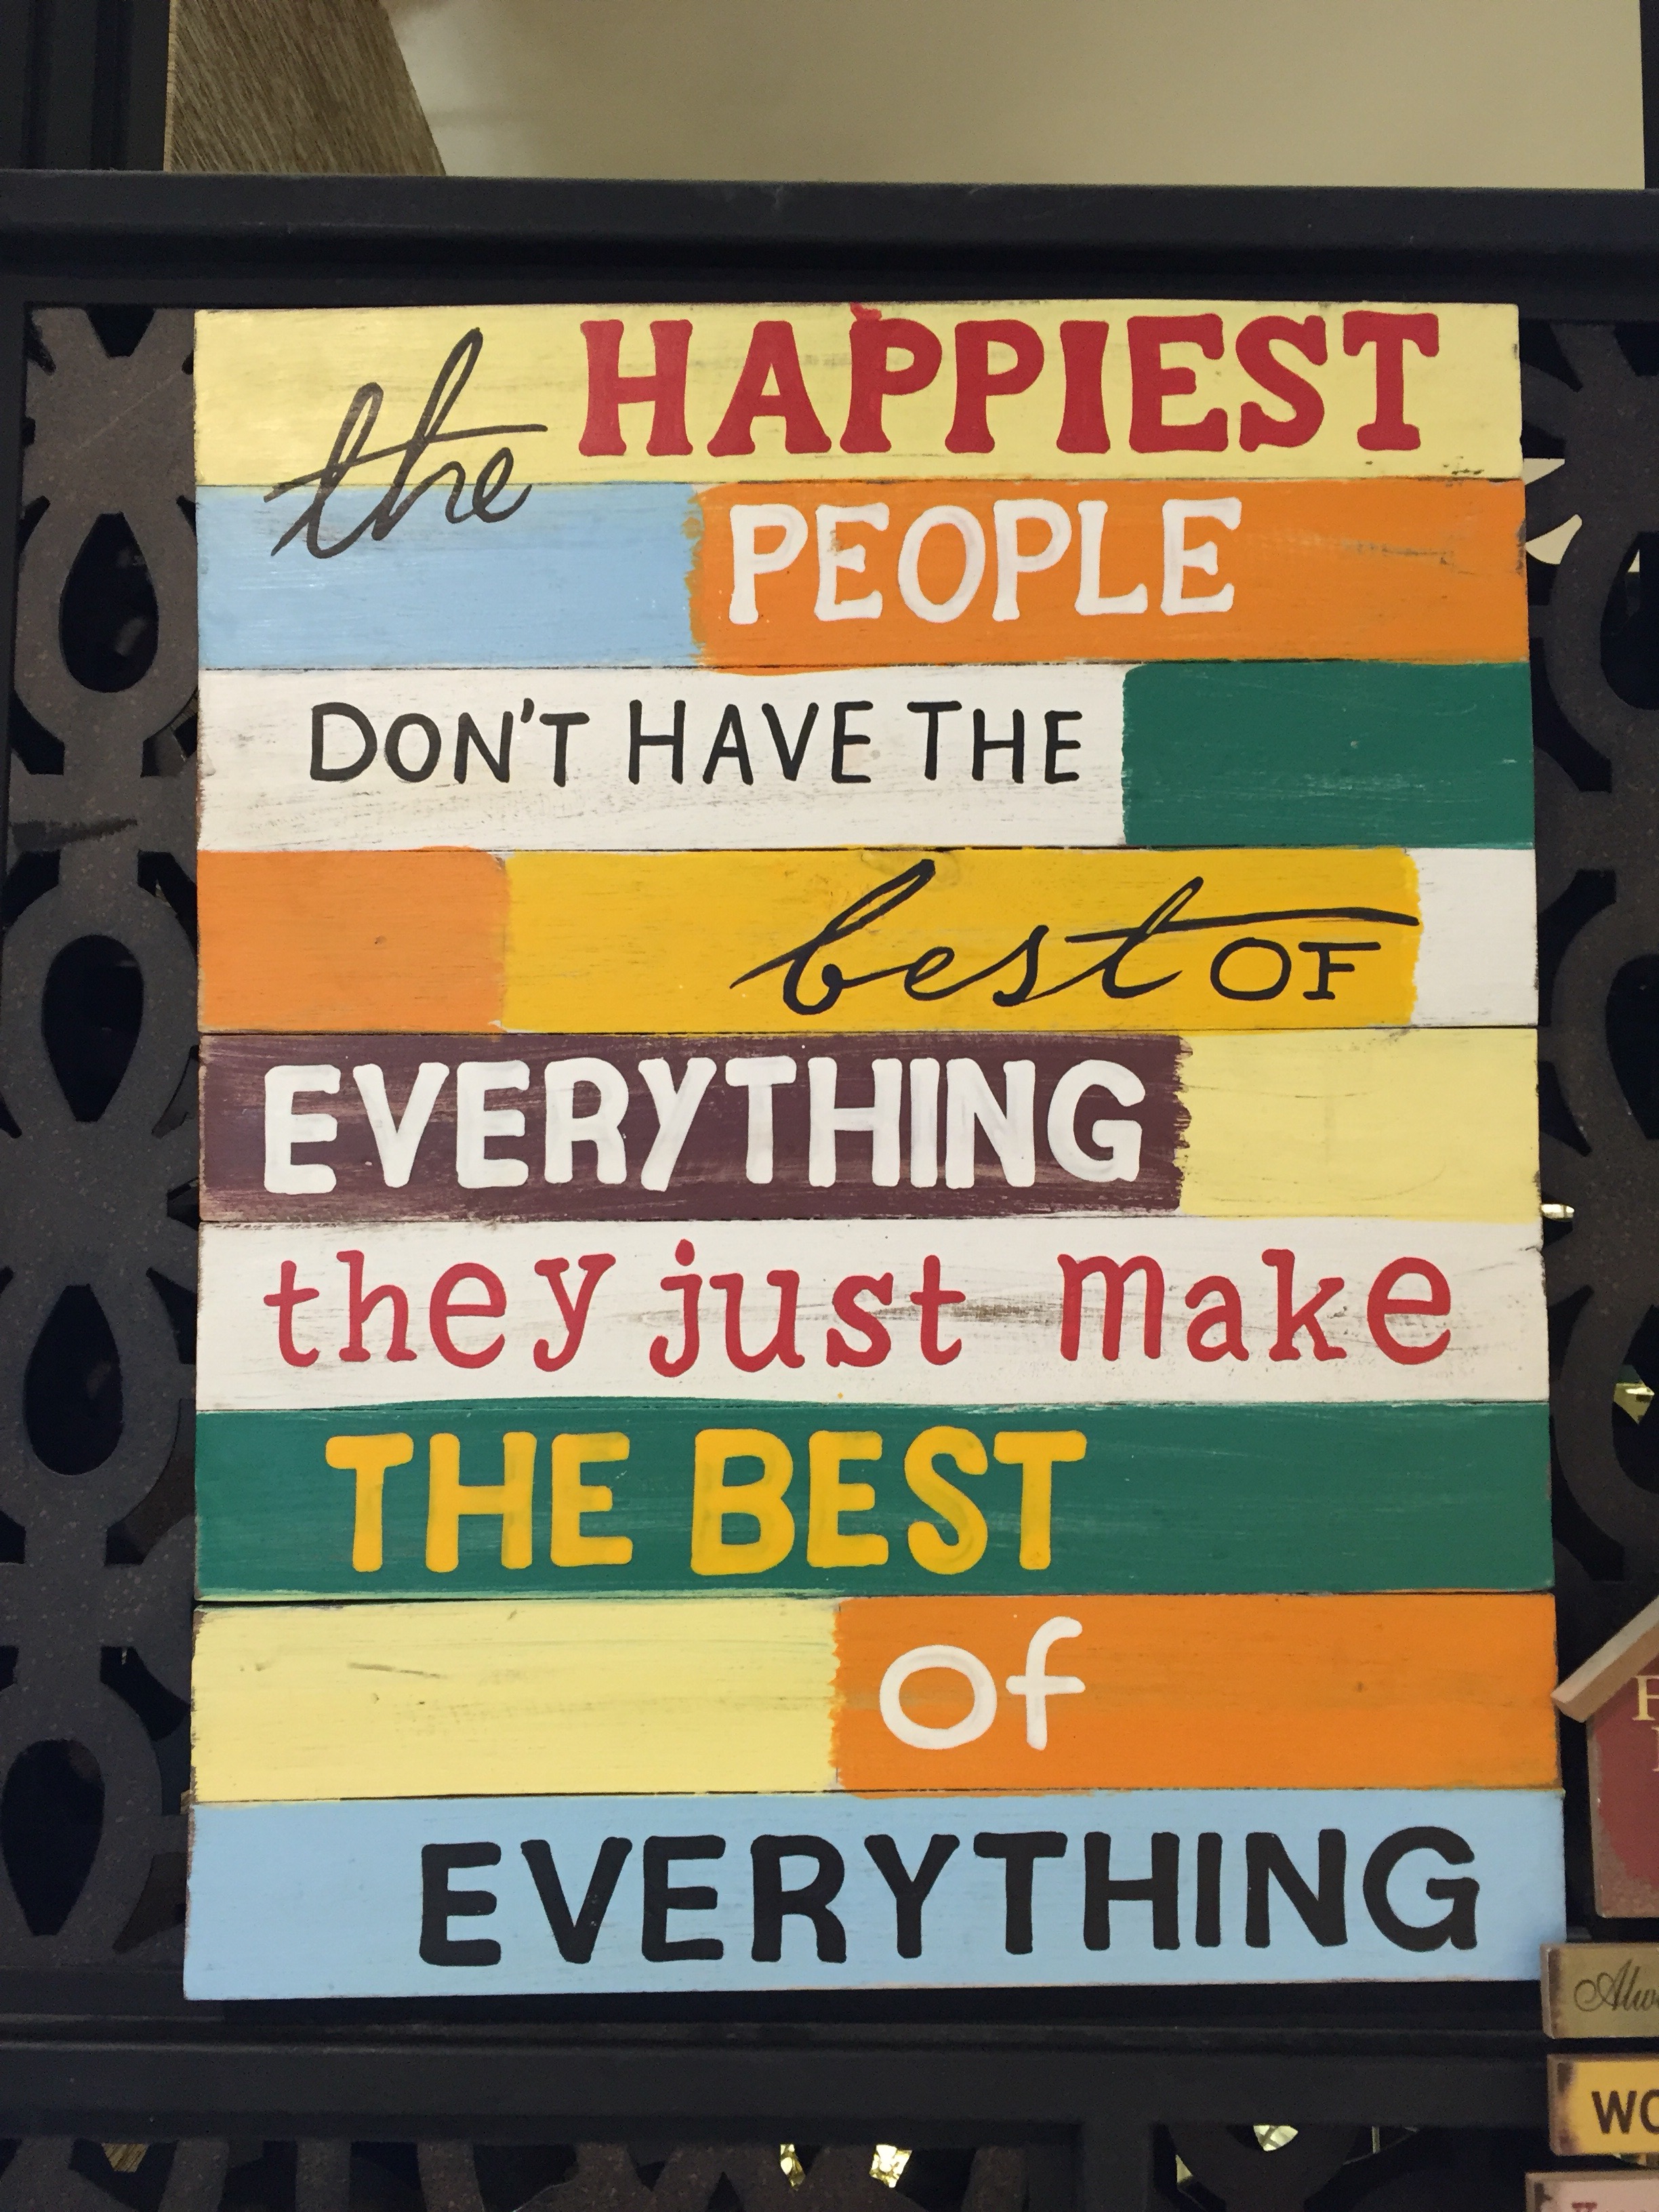 the HAPPIEST
PEOPLE
DON'T HAVE THE
best OF
EVERYTHING
they just make
THE BEST
of
EVERYTHING